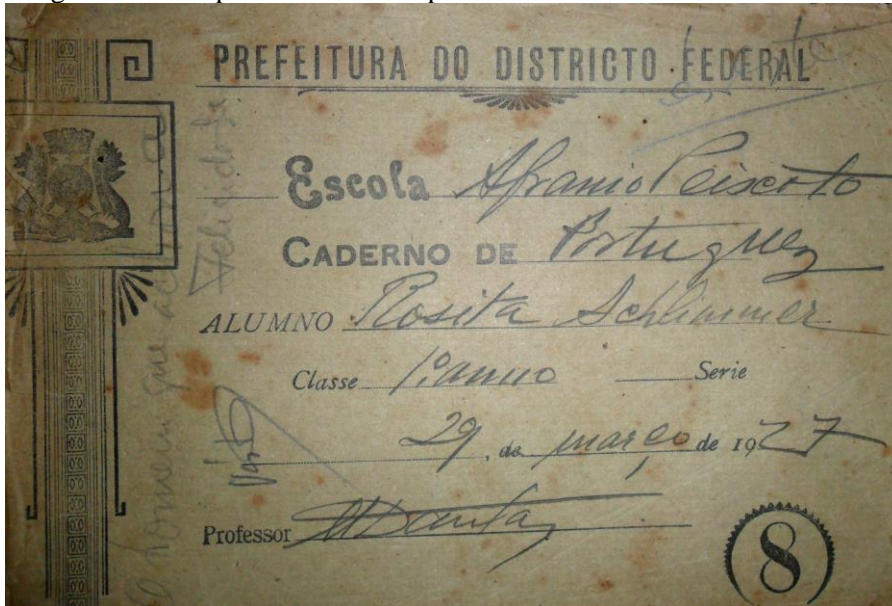 PREFEITURA DO DISTRICTO FEDERAL
Escola Afranio Peixoto
CADERNO DE Portuguez
ALUMNO Rosita Schliammer
Classe 1º anno Serie
29 de março de 1927
Professor MDantas
8
Visto
O homem que
Felicidade